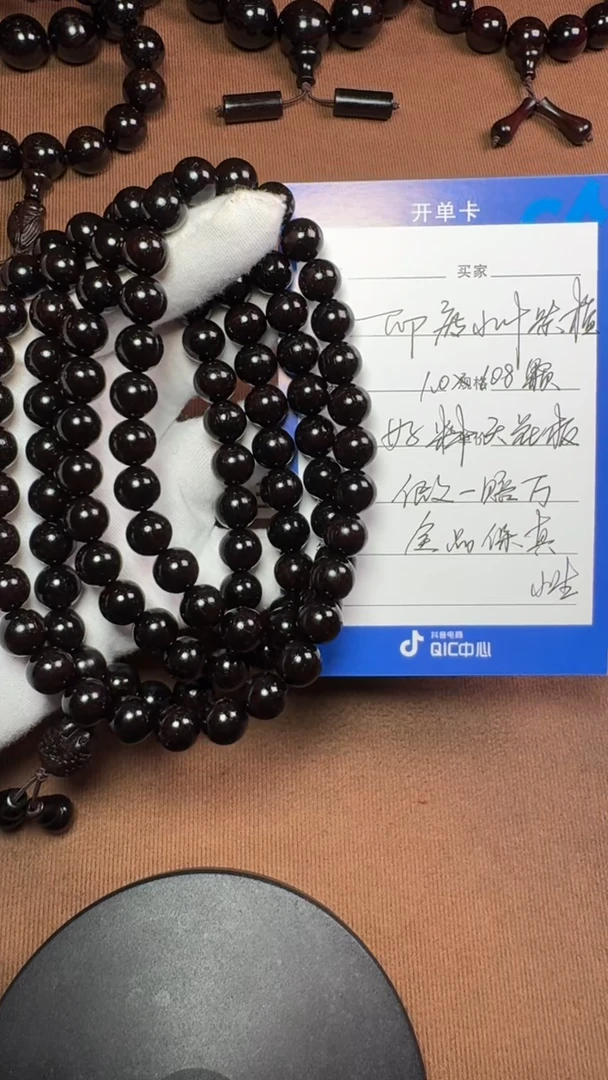 开单卡
买家
印度小叶紫檀
1.0规格108颗
好料天花板
假一赔万
全品保真
小生
抖音电商
QIC中心